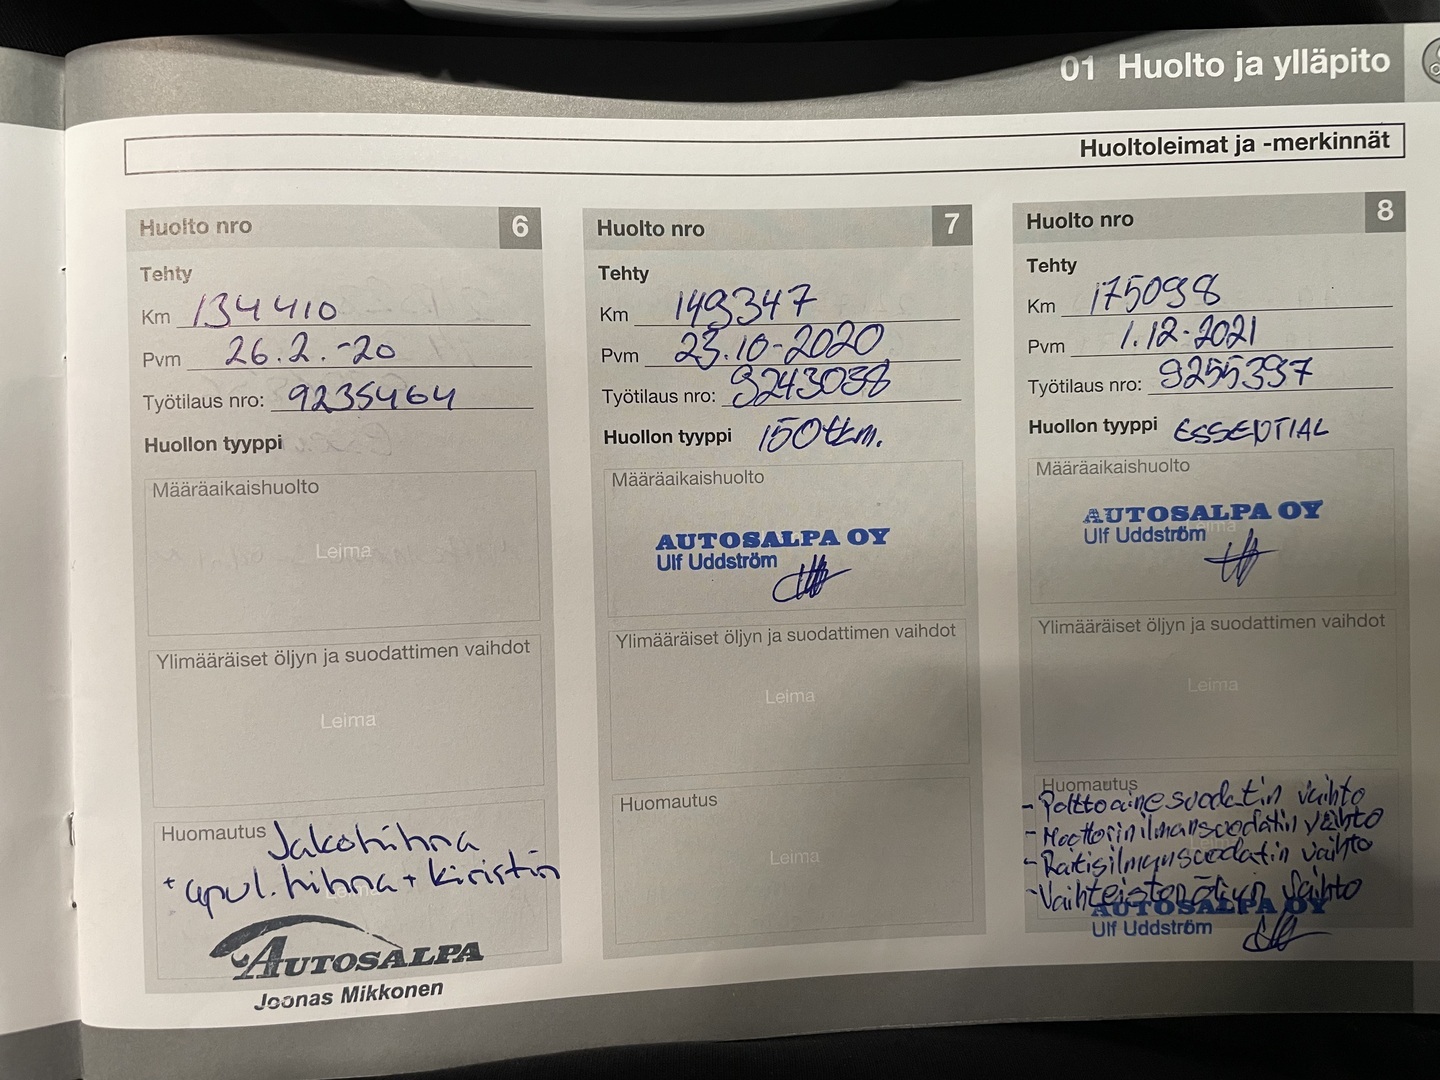 01 Huolto ja ylläpito
Huoltoleimat ja -merkinnät
Huolto nro 6
Tehty
Km 134410
Pvm 26.2.-20
Työtilaus nro: 9235464
Huollon tyyppi
Määräaikaishuolto
Leima
Ylimääräiset öljyn ja suodattimen vaihdot
Leima
Huomautus Jakohihna
+ apul.hihna + kiristin
AUTOSALPA
Joonas Mikkonen
Huolto nro 7
Tehty
Km 149347
Pvm 23.10-2020
Työtilaus nro: 9243038
Huollon tyyppi 150tkm.
Määräaikaishuolto
AUTOSALPA OY
Ulf Uddström
Ylimääräiset öljyn ja suodattimen vaihdot
Leima
Huomautus
Leima
Huolto nro 8
Tehty
Km 175098
Pvm 1.12-2021
Työtilaus nro: 9255397
Huollon tyyppi ESSENTIAL
Määräaikaishuolto
Leima
AUTOSALPA OY
Ulf Uddström
Ylimääräiset öljyn ja suodattimen vaihdot
Leima
Huomautus
- Polttoainesuodatin vaihto
- Moottorinilmansuodatin vaihto
- Raitisilmansuodatin vaihto
- Vaihteistonöljyn vaihto
AUTOSALPA OY
Ulf Uddström